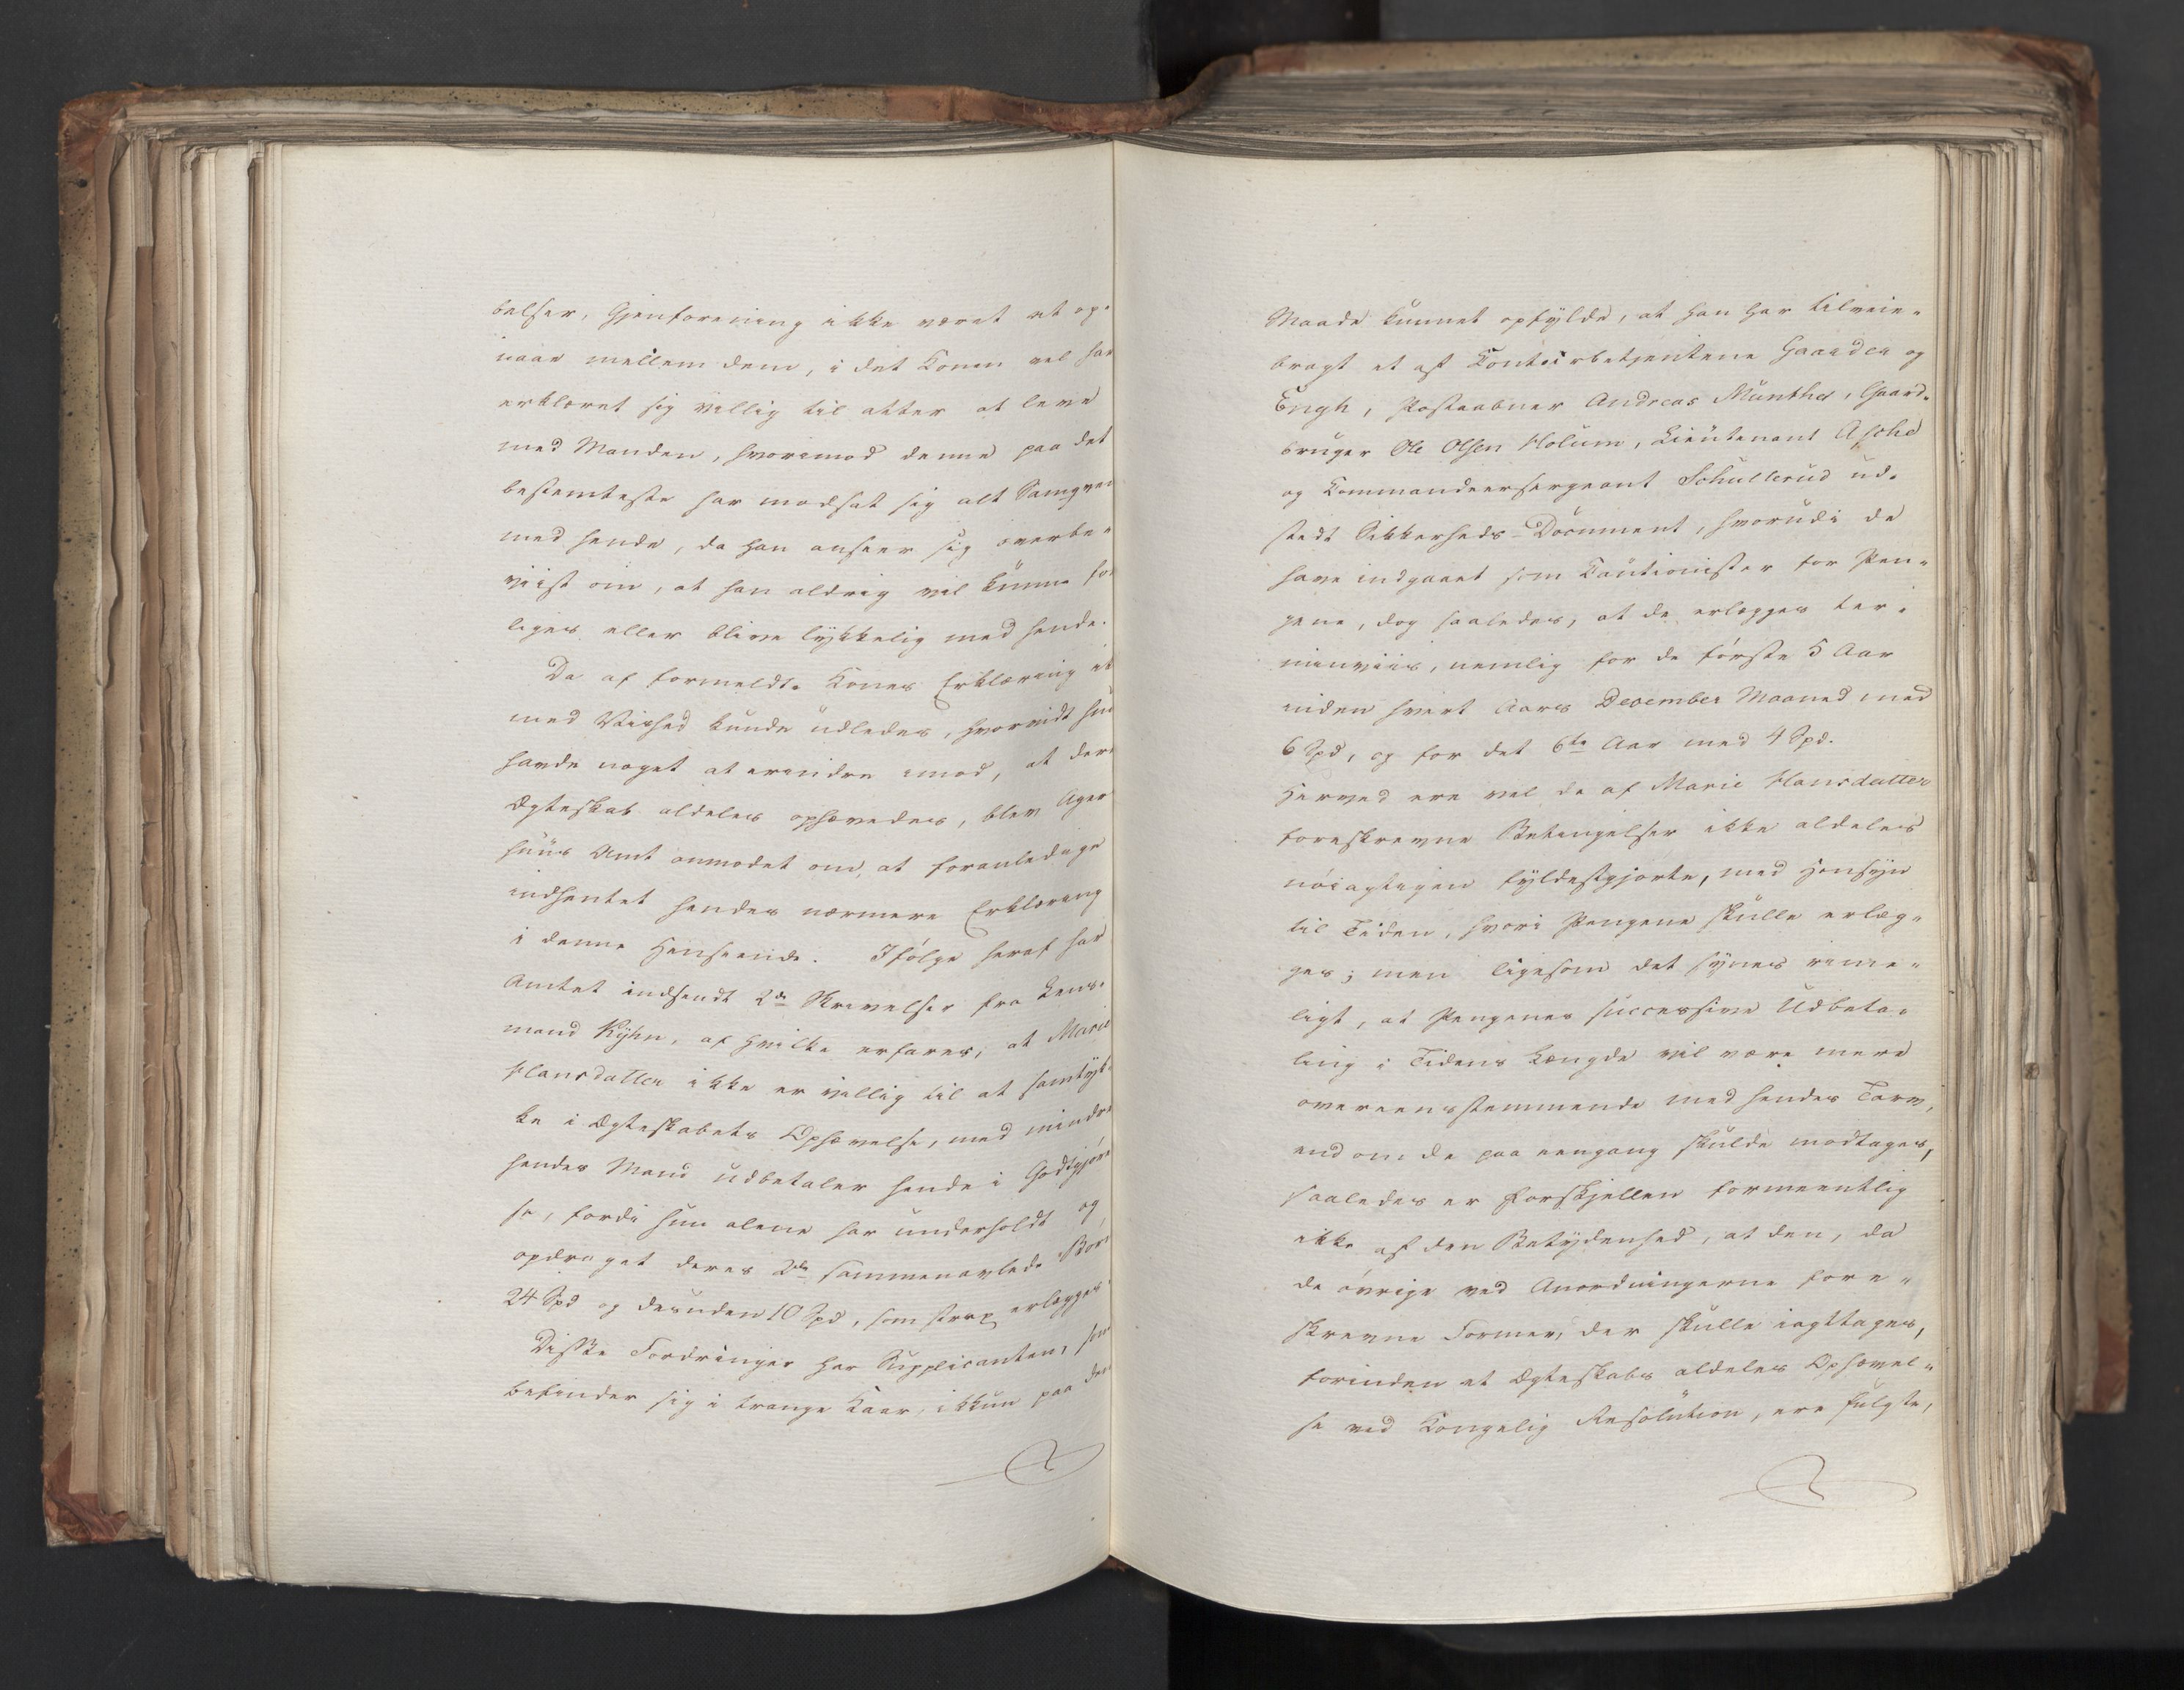 belser, Gjenforening ikke været at op-
naae mellem dem, i det Konen vel har
erklæret sig villig til atter at leve
med Manden, hvorimod denne paa det
bestemteste har modsat sig alt Samqvem
med hende, da han anseer sig overbe-
viist om, at han aldrig vil kunne for
liges eller blive lykkelig med hende.
Da af formeldte Kones Erklæring ei
med Vished kunde udledes, hvorvidt hun
havde noget at erindre imod, at deres
Ægteskab aldeles ophævedes, blev Agers
huus Amt anmodet om, at foranledige
indhentet hendes nærmere Erklæring
i denne Henseende. Ifølge heraf har
Amtet indsendt 2de Skrivelser fra Lens-
mand Kyhn, af hvilke erfares, at Marie
Hansdatter ikke er villig til at samtyk-
ke i Ægteskabets Ophævelse, med mindre
hendes Mand udbetaler hende i Godtgjørel
se, fordi hun alene har underholdt og
opdraget deres 2de sammenavlede Børn
24 Spd og desuden 10 Spd, som strax erlægges.
Disse Fordringer har Supplicanten, som
befinder sig i trange Kaar, ikkun paa den
Maade kunnet opfylde, at han har tilveie-
bragt et af Contoirbetjentene Gaarder og
Engh, Postaabner Andreas Münther, Gaard-
bruger Ole Olsen Holum, Lieutenant Asche
og Commandeersergeant Schullerud ud-
stedt Sikkerheds-Document, hvorudi de
have indgaaet som Cautionister for Pen-
gene, dog saaledes, at de erlægges ter-
minviis, nemlig for de første 5 Aar
inden hvert Aars December Maaned med
6 Spd, og for det 6te Aar med 4 Spd.
Herved ere vel de af Marie Hansdatter
foreskrevne Betingelser ikke aldeles
nöiagtigen fyldestgjorte, med Hensyn
til Tiden, hvori Pengene skulle erlæg-
ges; men ligesom det synes rime-
ligt, at Pengenes successive Udbeta-
ling i Tidens Længde vil være mere
overeensstemmende med hendes Tarv,
end om de paa eengang skulde modtages,
saaledes er Forskjellen formeentlig
ikke af den Betydenhed, at den, da
de øvrige ved Anordningerne fore-
skrevne Former, der skulle iagttages,
forinden et Ægteskabs aldeles Ophævel-
se ved Kongelig Resolution, ere fulgte,